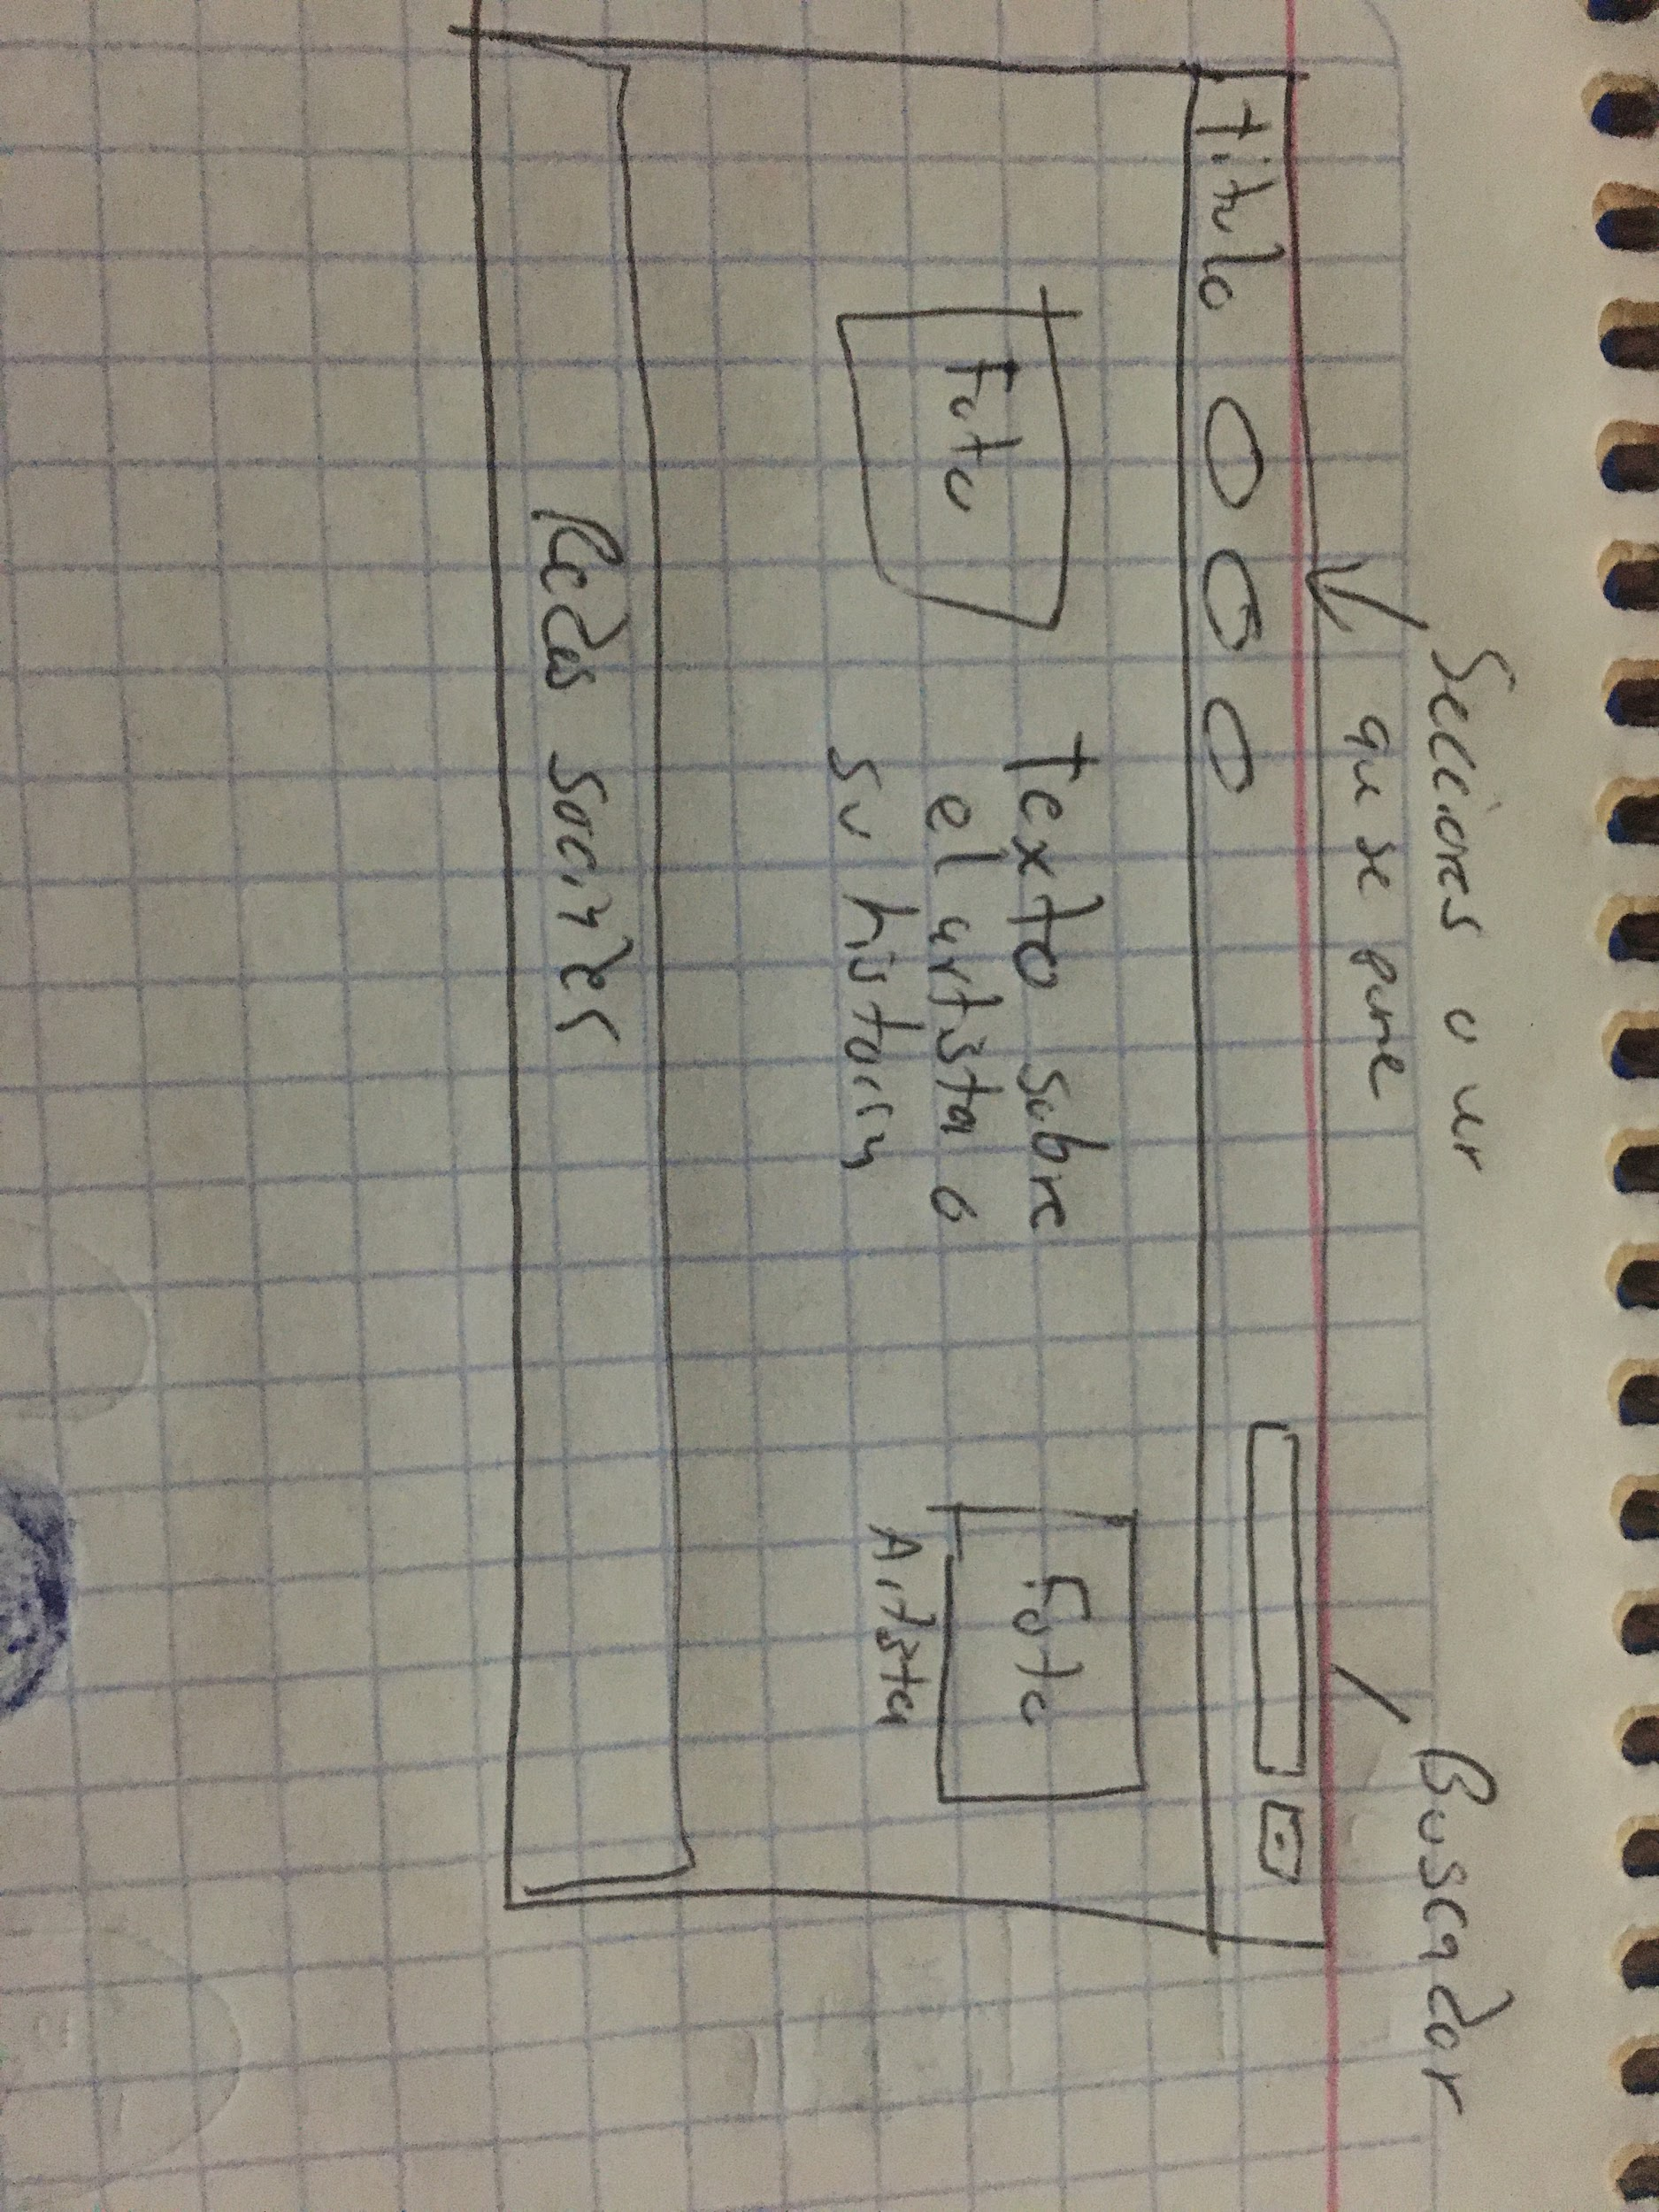 Secciones o ver
que se pone
Buscador
titulo
Foto
texto sobre
el artista o
su historia
Foto
Artista
Redes sociales